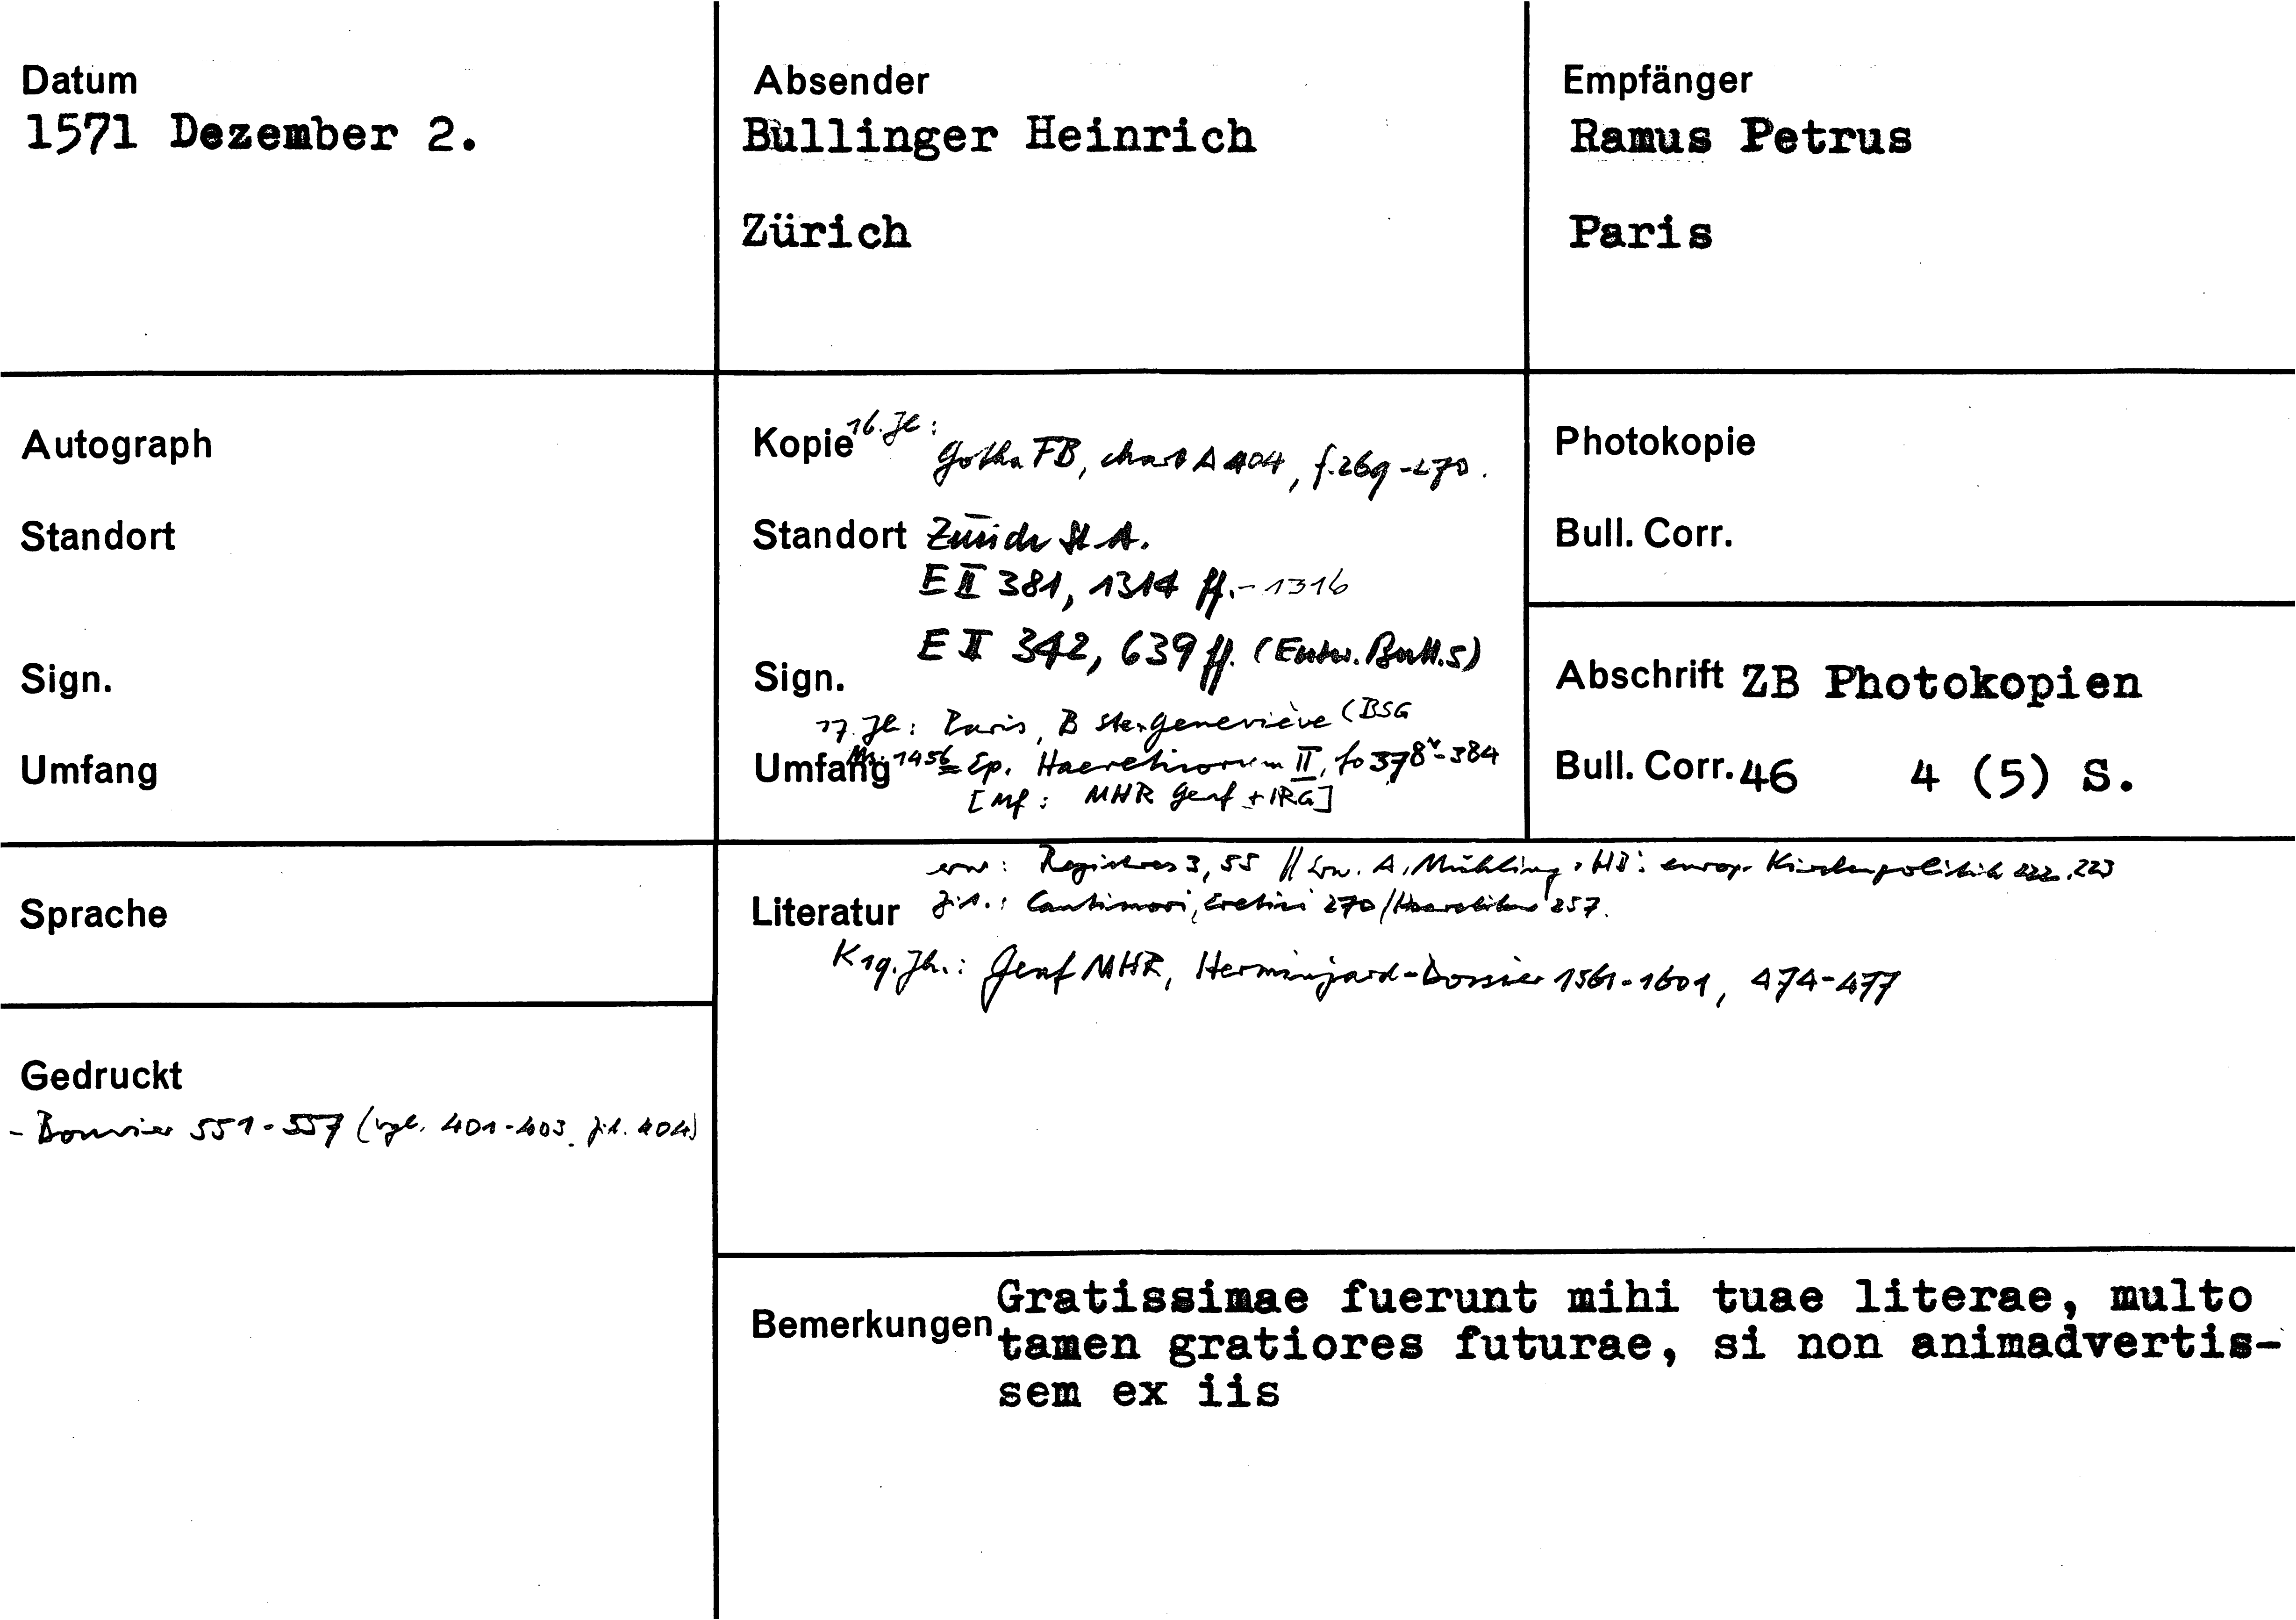 Datum
1571 Dezember 2.
Absender
Bullinger Heinrich
Zürich
Empfänger
Ramus Petrus
Paris
Autograph
Standort
Sign.
Umfang
Kopie 16. Jh:
Gotha FB, chart A 404, f. 269-270.
Standort Zürich St A.
E II 381, 1314 ff. - 1316
E II 342, 639 ff. (Entw. Bull.s)
Sign.
17. Jh: Paris, B Ste. Geneviève (BSG
Umfang Ms. 1456 = Ep. Haereticorum II, fo 378v-384
[Mf: MHR Genf + IRG]
Photokopie
Bull. Corr.
Abschrift ZB Photokopien
Bull. Corr. 46 4 (5) S.
Sprache
erw: Registres 3, 55 // Erw. A. Mühling, HB: europ. Kirchenpolitik 222, 223
Literatur zit.: Cantimori, Eretici 270/Haeretiker 257.
K 19. Jh.: Genf MHR, Herminjard-Dossier 1561-1601, 474-477
Gedruckt
- Bouvier 551-557 (vgl. 401-403, zit. 404)
Bemerkungen Gratissimae fuerunt mihi tuae literae, multo
tamen gratiores futurae, si non animadvertis-
sem ex iis